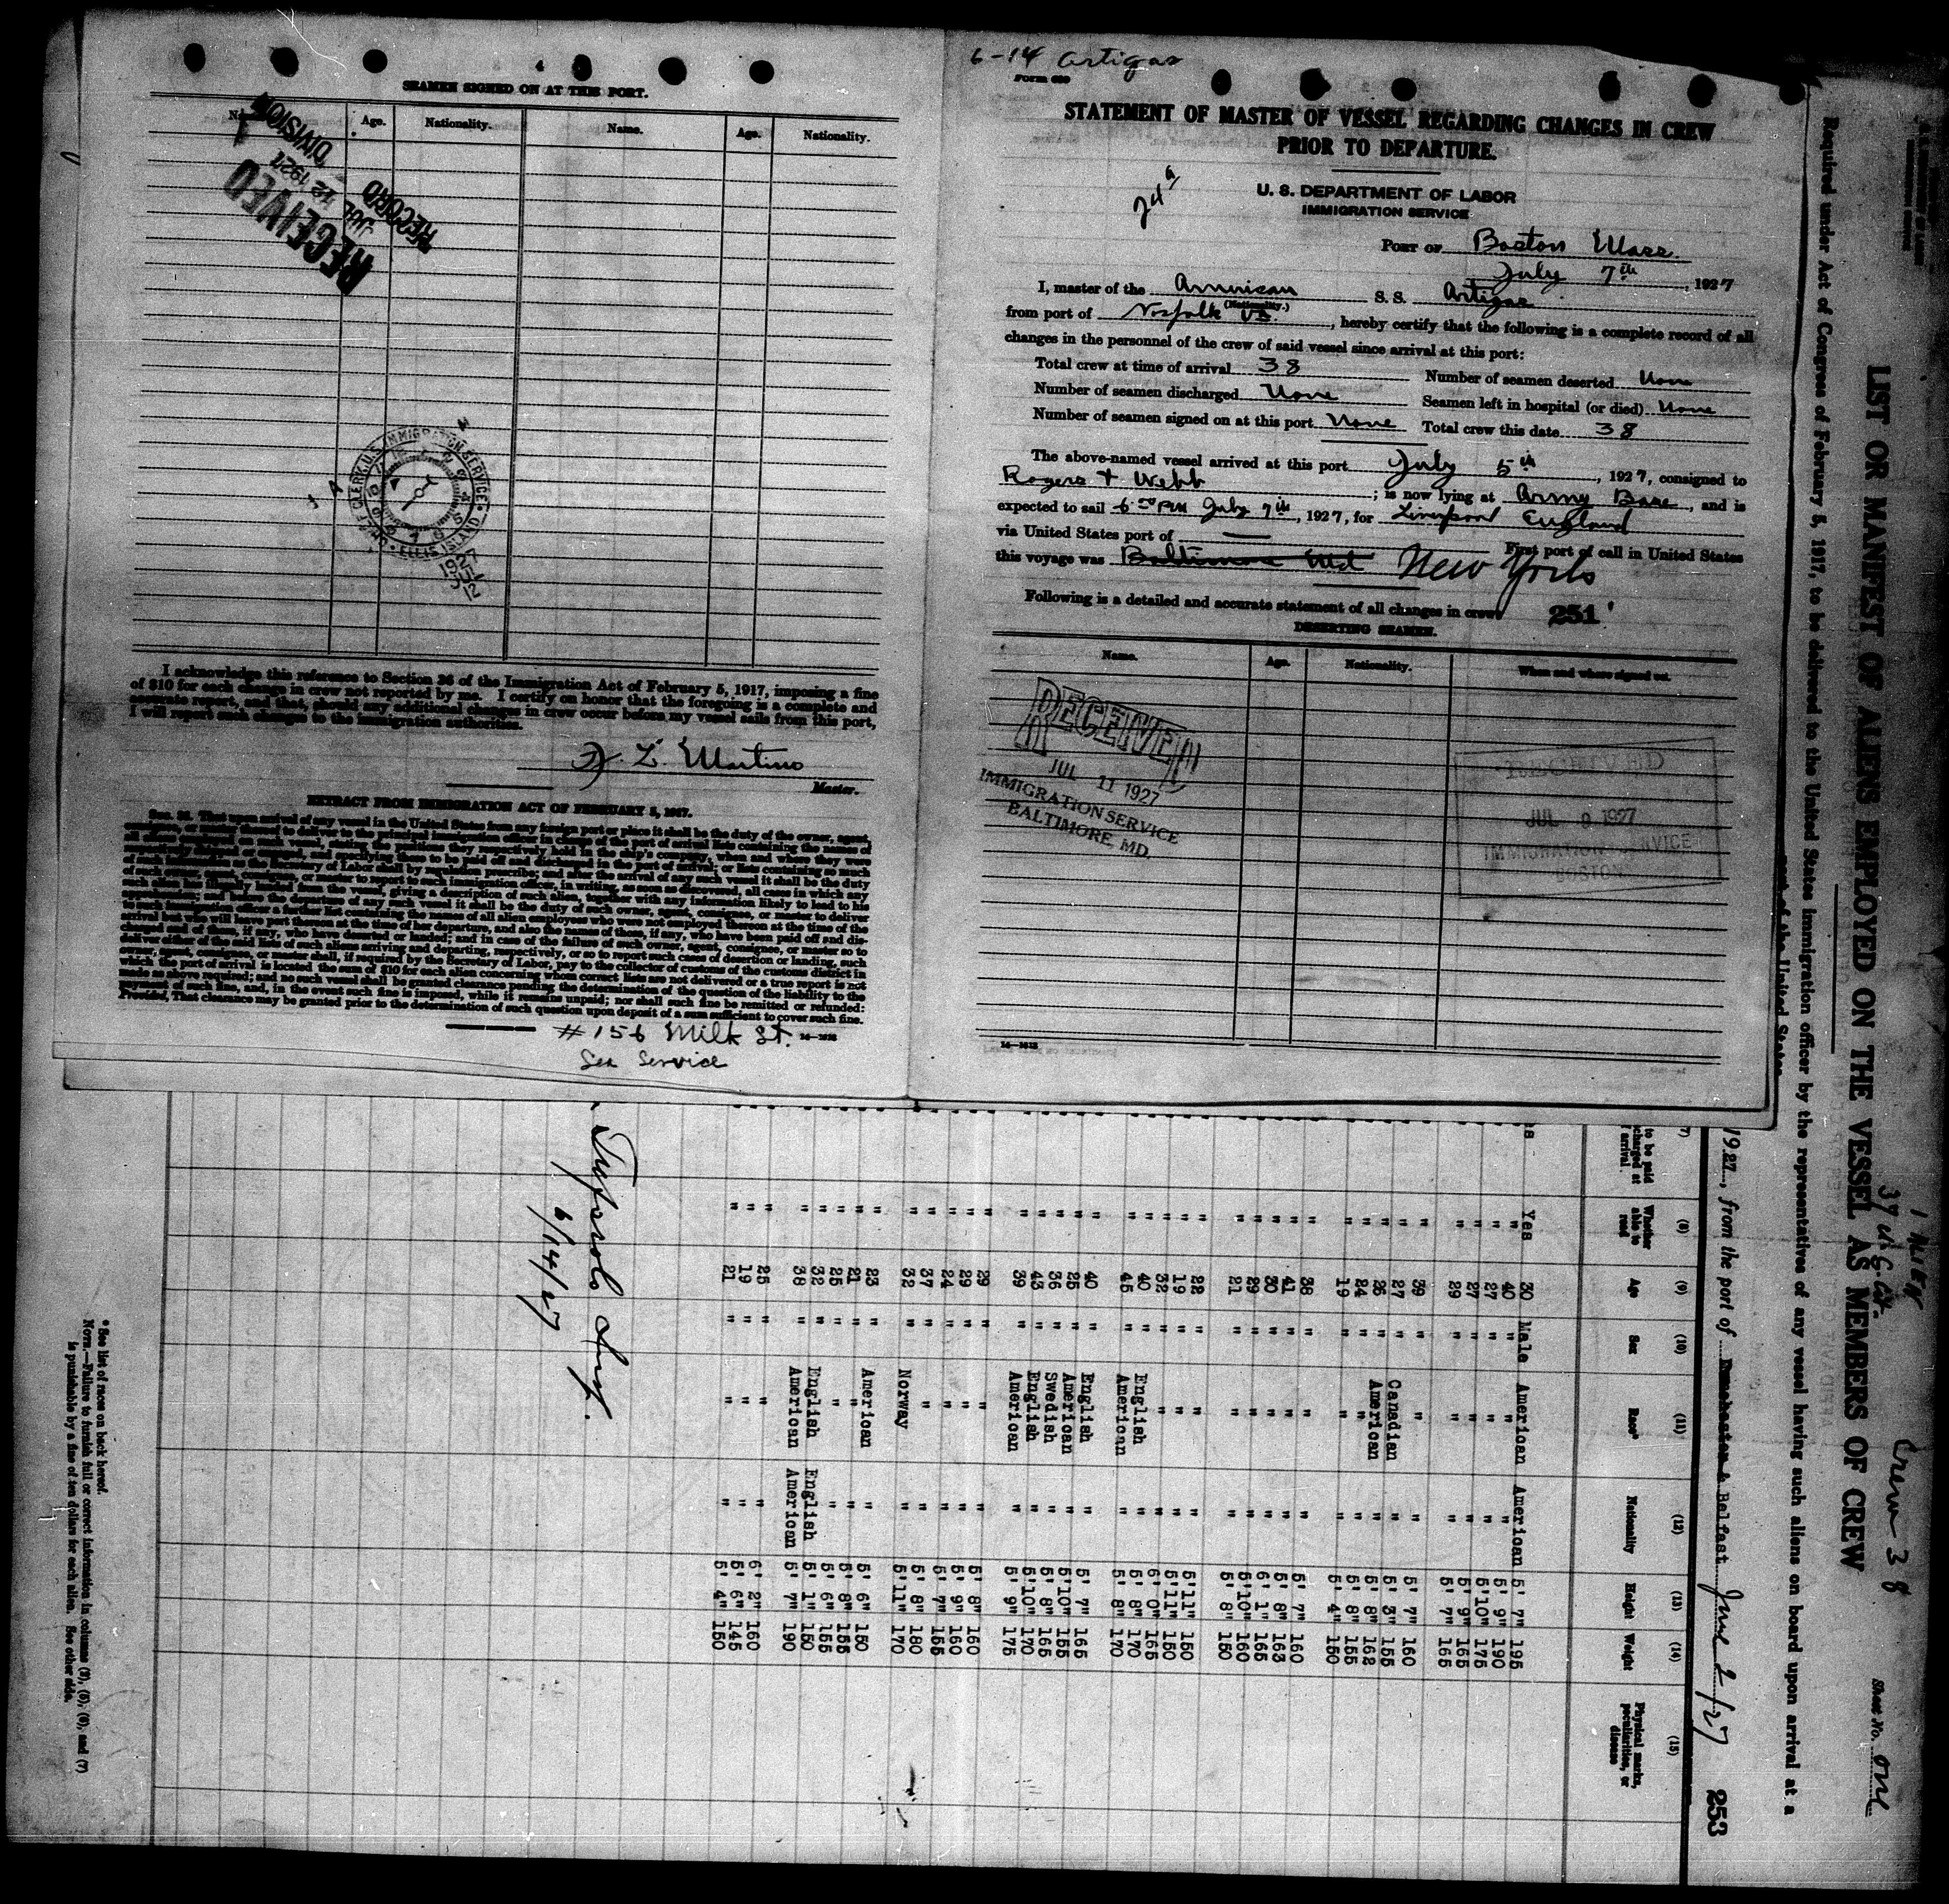 SEAMEN SIGNED ON AT THIS PORT.
Age. Nationality. Name. Age. Nationality.
RECEIVED
JUL 12 1927
RECORD
DIVISION
CHIEF CLERK, U.S. IMMIGRATION SERVICE
ELLIS ISLAND
I acknowledge this reference to Section 36 of the Immigration Act of February 5, 1917, imposing a fine
of $10 for each change in crew not reported by me. I certify on honor that the foregoing is a complete and
accurate report, and that, should any additional changes in crew occur before my vessel sails from this port,
I will report such changes to the immigration authorities.
L. Martino
Master.
EXTRACT FROM IMMIGRATION ACT OF FEBRUARY 5, 1917.
SEC. 36. That upon arrival of any vessel in the United States from any foreign port or place it shall be the duty of the owner, agent,
of such owner, agent, consignee, or master to report to such immigration officer, in writing, as soon as discovered, all cases in which any
such alien has illegally landed from the vessel, giving a description of such alien, together with any information likely to lead to his
apprehension; and before the departure of any such vessel it shall be the duty of such owner, agent, consignee, or master to deliver
to such immigration officer a further list containing the names of all alien employees who were not employed thereon at the time of the
arrival but who will leave port thereon at the time of her departure, and also the names of those, if any, who have been paid off and dis-
charged and of those, if any, who have deserted or landed; and in case of the failure of such owner, agent, consignee, or master so to
deliver either of the said lists of such aliens arriving and departing, respectively, or so to report such cases of desertion or landing, such
owner, agent, consignee, or master shall, if required by the Secretary of Labor, pay to the collector of customs of the customs district in
which the port of arrival is located the sum of $10 for each alien concerning whom correct lists are not delivered or a true report is not
made as above required; and no such vessel shall be granted clearance pending the determination of the question of the liability to the
payment of such fine, and, in the event such fine is imposed, while it remains unpaid; nor shall such fine be remitted or refunded:
Provided, That clearance may be granted prior to the determination of such question upon deposit of a sum sufficient to cover such fine.
# 156 Milk St.
Sea Service
6-14 Artigas
Form 689
STATEMENT OF MASTER OF VESSEL REGARDING CHANGES IN CREW
PRIOR TO DEPARTURE.
U. S. DEPARTMENT OF LABOR
IMMIGRATION SERVICE
PORT OF Boston Mass.
July 7th, 1927
I, master of the American S. S. Artigas
(Nationality.)
from port of Norfolk Va., hereby certify that the following is a complete record of all
changes in the personnel of the crew of said vessel since arrival at this port:
Total crew at time of arrival 38 Number of seamen deserted None
Number of seamen discharged None Seamen left in hospital (or died) None
Number of seamen signed on at this port None Total crew this date 38
The above-named vessel arrived at this port July 5th, 1927, consigned to
Rogers & Webb; is now lying at Army Base, and is
expected to sail 6 00 PM July 7th, 1927, for Liverpool England
via United States port of — First port of call in United States
this voyage was Baltimore Md New York
Following is a detailed and accurate statement of all changes in crew: 251
DESERTING SEAMEN.
Name. Age. Nationality. When and where signed on.
RECEIVED
JUL 11 1927
IMMIGRATION SERVICE
BALTIMORE, MD.
RECEIVED
JUL 9 1927
IMMIGRATION SERVICE
BOSTON
1 ALIEN
37 U.S.Cit.
Crew 38
Sheet No. One
LIST OR MANIFEST OF ALIENS EMPLOYED ON THE VESSEL AS MEMBERS OF CREW
Required under Act of Congress of February 5, 1917, to be delivered to the United States immigration officer by the representatives of any vessel having such aliens on board upon arrival at a
port of the United States
1927, from the port of Manchester & Belfast June 2/27 253
(8) (9) (10) (11) (12) (13) (14) (15)
to be paid
discharged at
arrival. Whether able to read Age Sex Race* Nationality Height Weight Physical marks, peculiarities, or disease
Yes 30 Male American American 5' 7" 195
" 40 " " " 5' 9" 190
" 27 " " " 5'10" 175
" 27 " " " 5' 9" 165
" 29 " " " 5' 7" 165
" 39 " " " 5' 7" 160
" 27 " Canadian " 5' 3" 155
" 26 " American " 5' 8" 162
" 24 " " " 5' 8" 155
" 19 " " " 5' 4" 150
" 38 " " " 5' 7" 160
" 41 " " " 5' 8" 163
" 30 " " " 6' 1" 165
" 29 " " " 5'10" 160
" 21 " " " 5' 8" 150
" 22 " " " 5'11" 150
" 19 " " " 5'11" 150
" 32 " " " 6' 0" 165
" 40 " English " 5' 8" 170
" 45 " American " 5' 8" 170
" 40 " English " 5' 7" 165
" 25 " American " 5'10" 155
" 36 " Swedish " 5' 8" 165
" 43 " English " 5'10" 170
" 39 " American " 5' 9" 175
" 29 " " " 5' 8" 160
" 29 " " " 5' 9" 160
" 24 " " " 5' 7" 155
" 37 " " " 5' 8" 180
" 32 " Norway " 5'11" 170
" 23 " American " 5' 6" 150
" 21 " " " 5' 8" 155
" 25 " " " 5' 6" 155
" 32 " English English 5' 1" 150
" 38 " American American 5' 7" 190
" 25 " " " 6' 2" 160
" 19 " " " 5' 6" 145
" 21 " " " 5' 4" 150
Insp.
6/14/27
* See list of races on back hereof.
NOTE.—Failure to furnish full or correct information in columns (3), (5), (6), and (7)
is punishable by a fine of ten dollars for each alien. See other side.